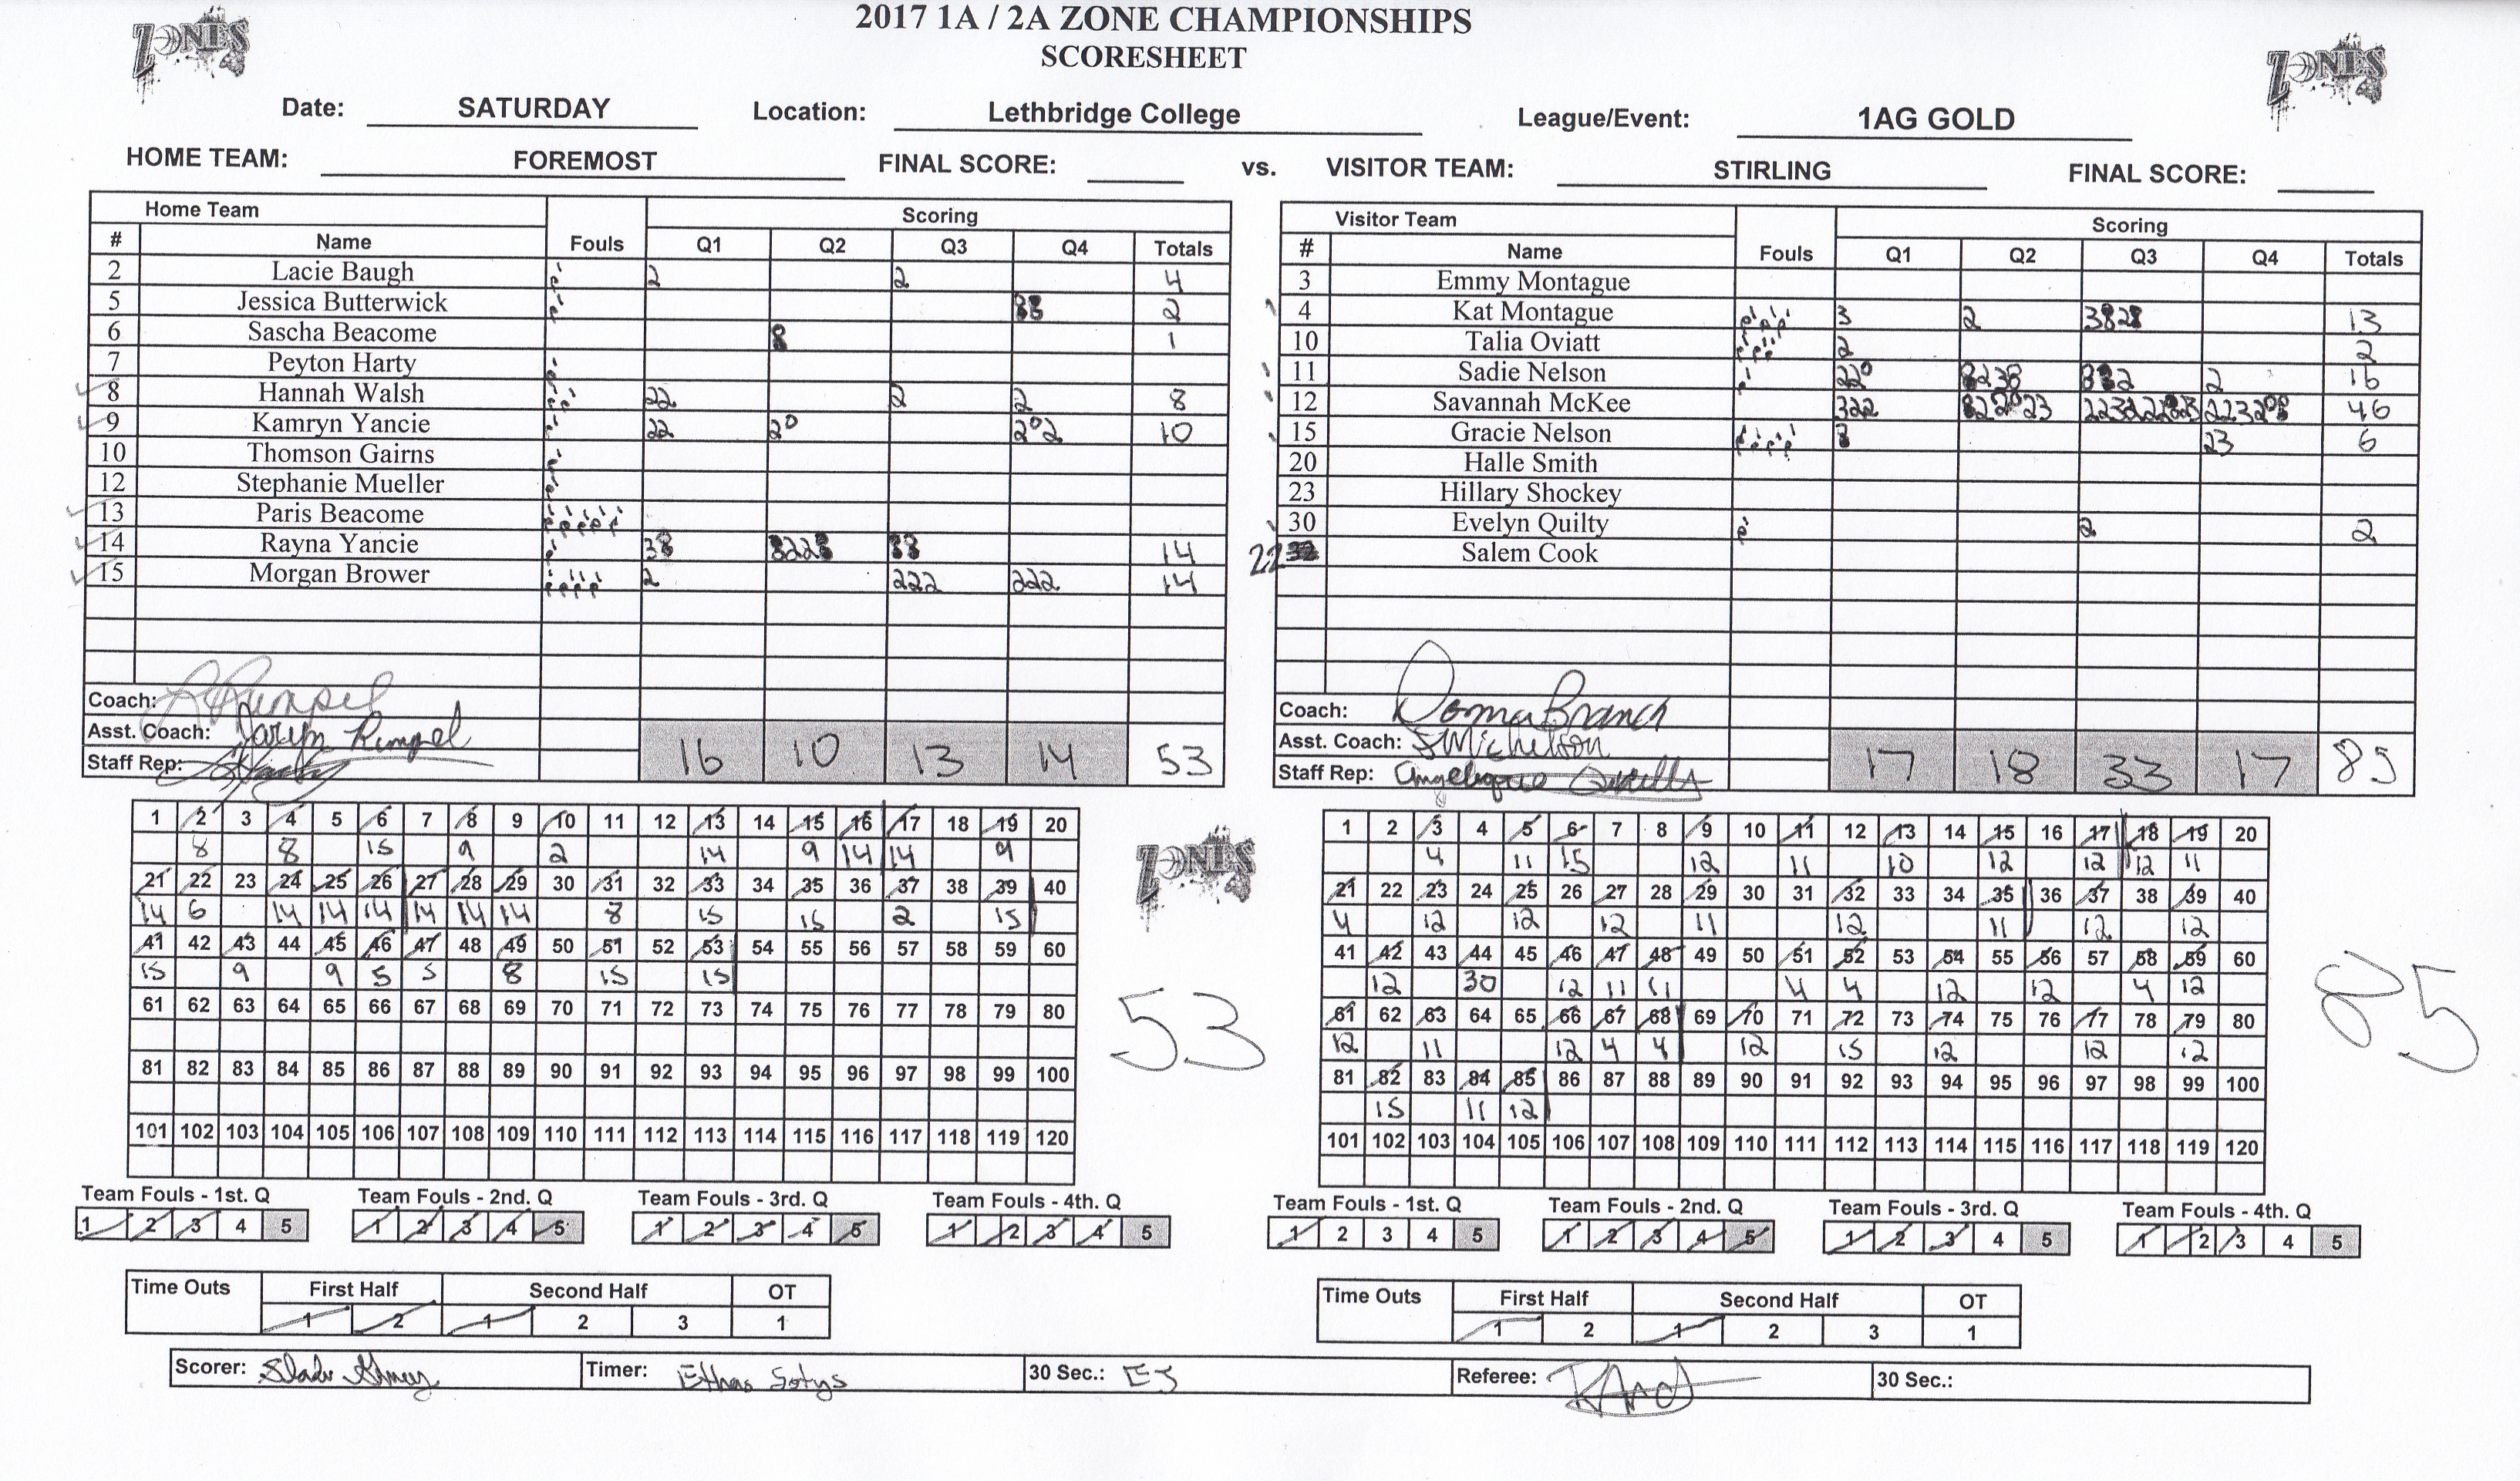 2017 1A / 2A ZONE CHAMPIONSHIPS
SCORESHEET
ZONES
ZONES
Date: SATURDAY Location: Lethbridge College League/Event: 1AG GOLD
HOME TEAM: FOREMOST FINAL SCORE: vs. VISITOR TEAM: STIRLING FINAL SCORE:
Home Team Scoring
# Name Fouls Q1 Q2 Q3 Q4 Totals
2 Lacie Baugh 2 2 4
5 Jessica Butterwick 2
6 Sascha Beacome 1
7 Peyton Harty
8 Hannah Walsh 22 2 2 8
9 Kamryn Yancie 22 20 202 10
10 Thomson Gairns
12 Stephanie Mueller
13 Paris Beacome
14 Rayna Yancie 14
15 Morgan Brower 2 222 222 14
Coach: Rempel
Asst. Coach: Jaryn Rempel
Staff Rep:
16 10 13 14 53
Visitor Team Scoring
# Name Fouls Q1 Q2 Q3 Q4 Totals
3 Emmy Montague
4 Kat Montague 3 2 13
10 Talia Oviatt 2 2
11 Sadie Nelson 220 2 16
12 Savannah McKee 322 46
15 Gracie Nelson 23 6
20 Halle Smith
23 Hillary Shockey
30 Evelyn Quilty 2 2
22 Salem Cook
Coach: Donna Branch
Asst. Coach: J Michelson
Staff Rep: Angelique
17 18 33 17 85
1 2 3 4 5 6 7 8 9 10 11 12 13 14 15 16 17 18 19 20
8 8 15 9 2 14 9 14 14 9
21 22 23 24 25 26 27 28 29 30 31 32 33 34 35 36 37 38 39 40
14 6 14 14 14 14 14 14 8 15 15 2 15
41 42 43 44 45 46 47 48 49 50 51 52 53 54 55 56 57 58 59 60
15 9 9 5 5 8 15 15
61 62 63 64 65 66 67 68 69 70 71 72 73 74 75 76 77 78 79 80
81 82 83 84 85 86 87 88 89 90 91 92 93 94 95 96 97 98 99 100
101 102 103 104 105 106 107 108 109 110 111 112 113 114 115 116 117 118 119 120
ZONES
53
1 2 3 4 5 6 7 8 9 10 11 12 13 14 15 16 17 18 19 20
4 11 15 12 11 10 12 12 12 11
21 22 23 24 25 26 27 28 29 30 31 32 33 34 35 36 37 38 39 40
4 12 12 12 11 12 11 12 12
41 42 43 44 45 46 47 48 49 50 51 52 53 54 55 56 57 58 59 60
12 30 12 11 11 4 4 12 12 4 12
61 62 63 64 65 66 67 68 69 70 71 72 73 74 75 76 77 78 79 80
12 11 12 4 4 12 15 12 12 12
81 82 83 84 85 86 87 88 89 90 91 92 93 94 95 96 97 98 99 100
15 11 12
101 102 103 104 105 106 107 108 109 110 111 112 113 114 115 116 117 118 119 120
85
Team Fouls - 1st. Q Team Fouls - 2nd. Q Team Fouls - 3rd. Q Team Fouls - 4th. Q
1 2 3 4 5 1 2 3 4 5 1 2 3 4 5 1 2 3 4 5
Team Fouls - 1st. Q Team Fouls - 2nd. Q Team Fouls - 3rd. Q Team Fouls - 4th. Q
1 2 3 4 5 1 2 3 4 5 1 2 3 4 5 1 2 3 4 5
Time Outs First Half Second Half OT
1 2 1 2 3 1
Time Outs First Half Second Half OT
1 2 1 2 3 1
Scorer: Timer: Ethan Sotys 30 Sec.: ES Referee: 30 Sec.: